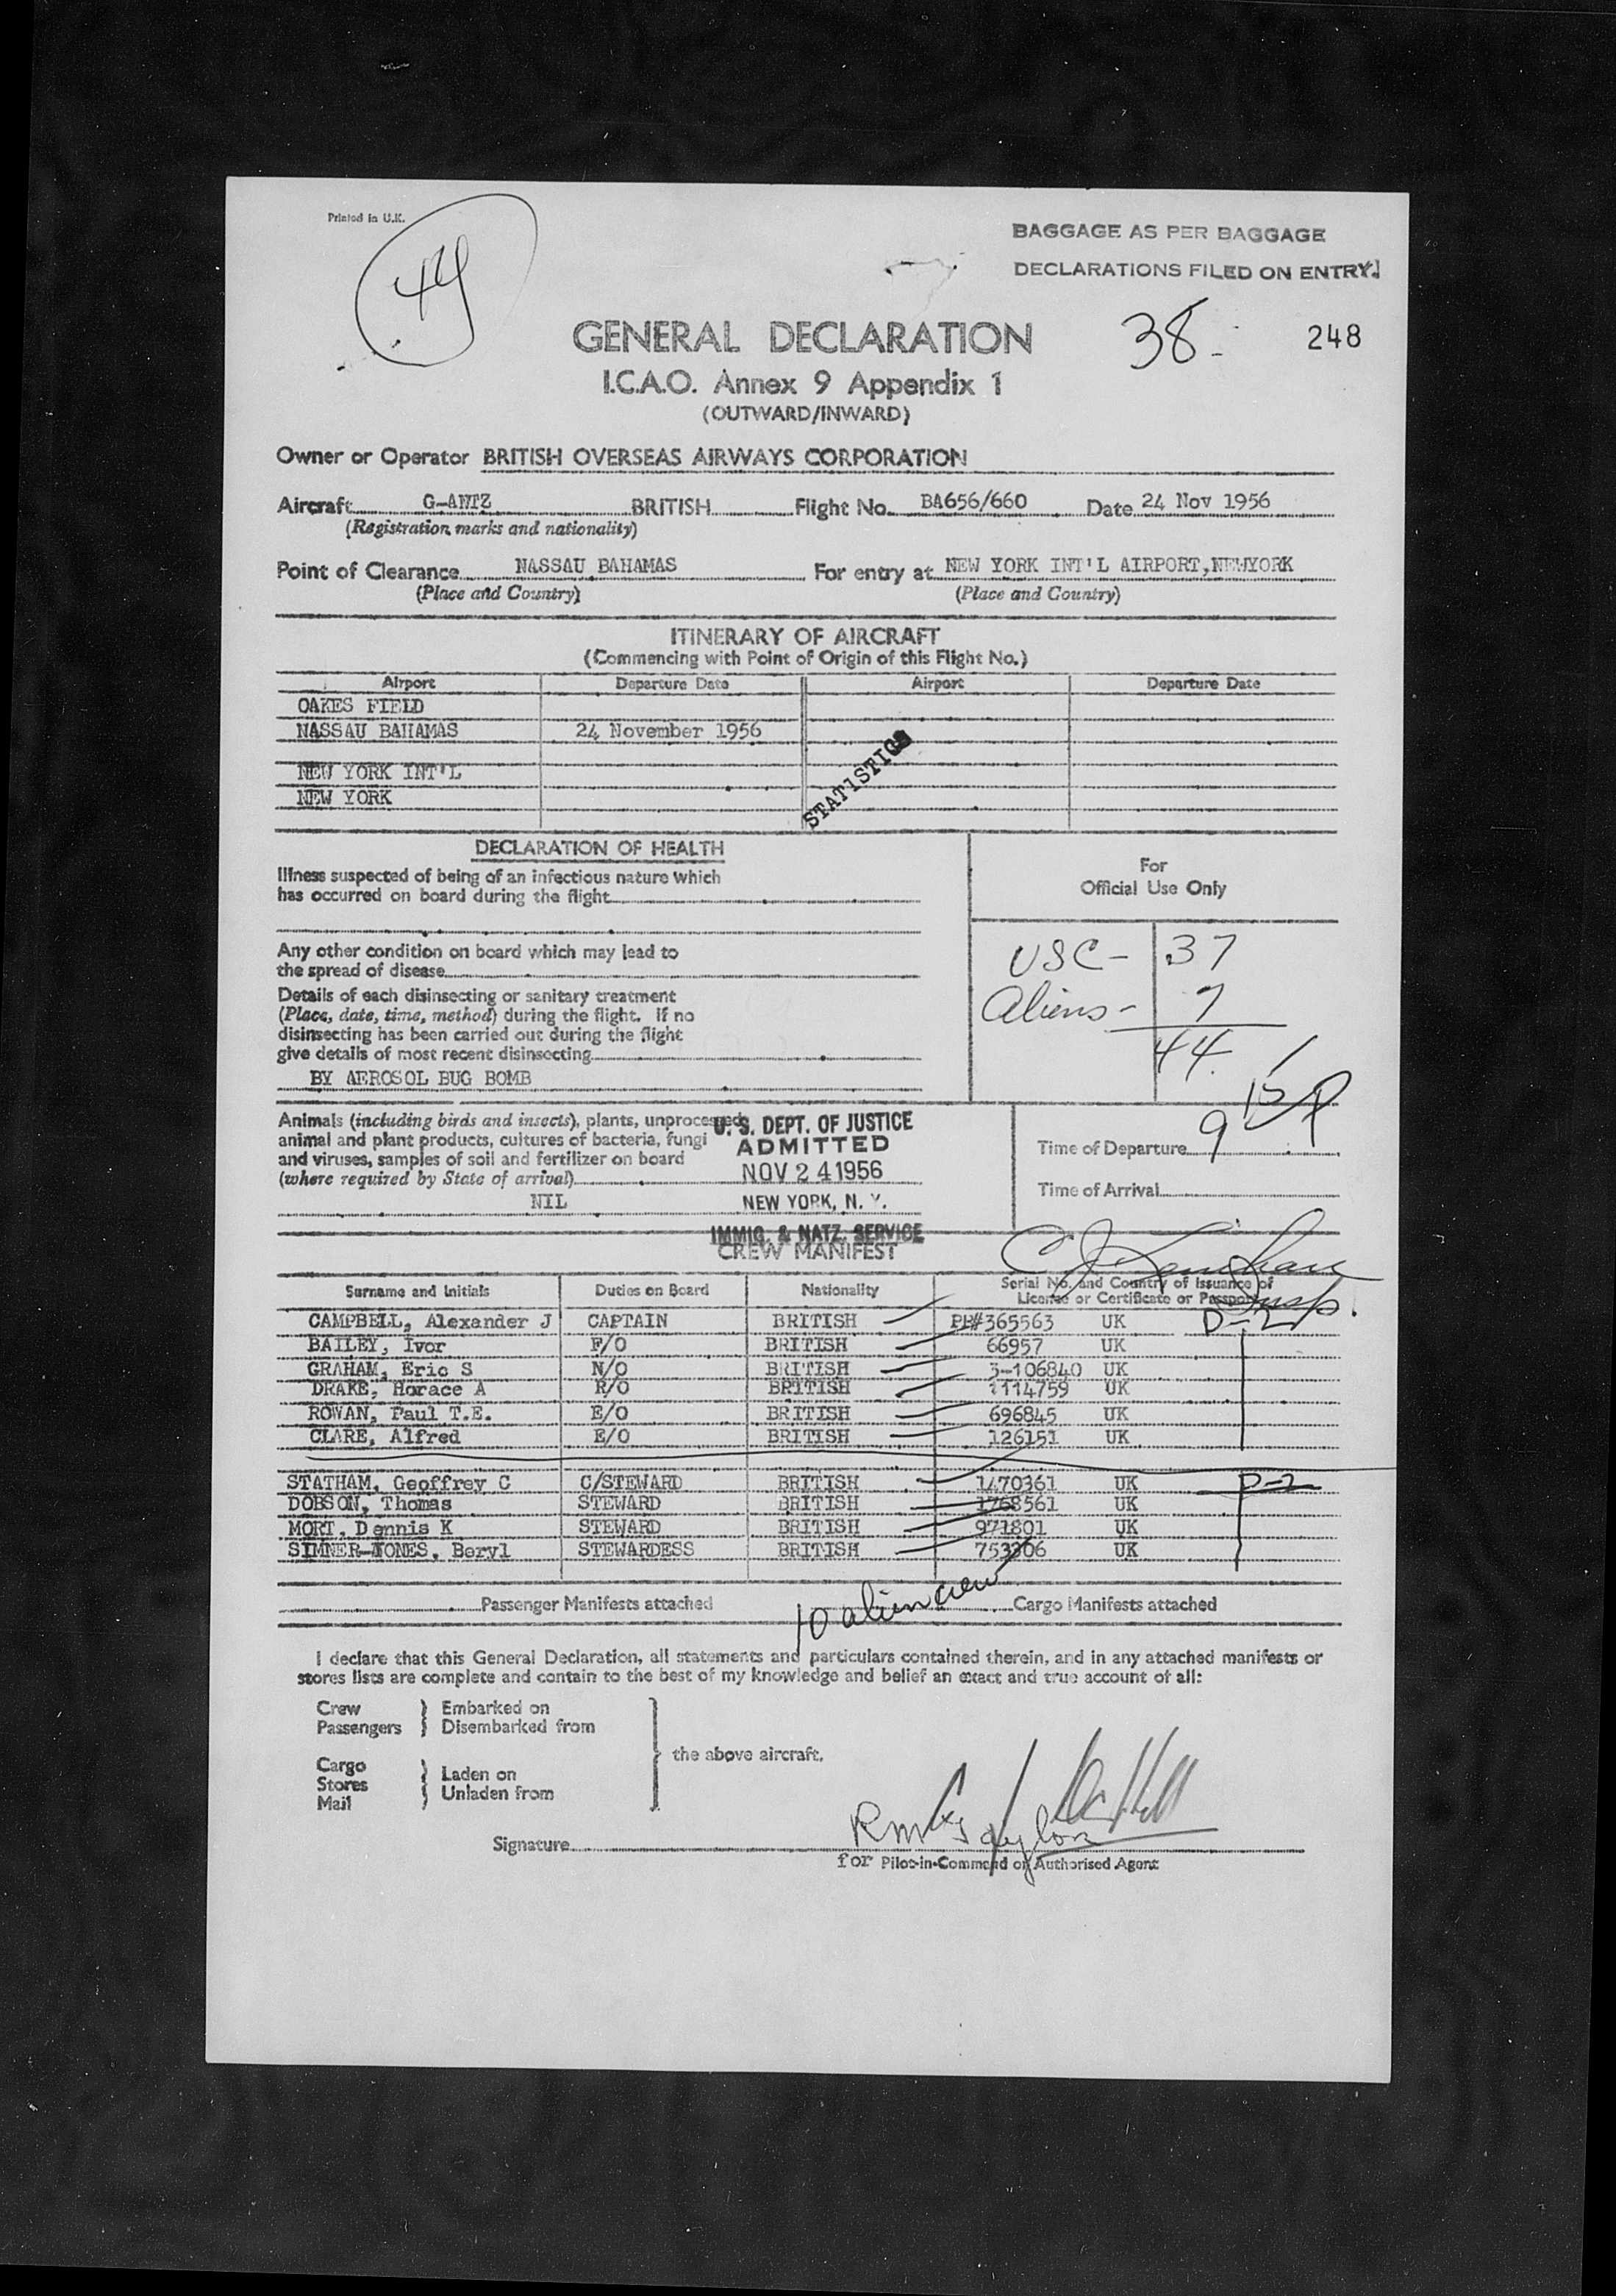 Printed in U.K.
44
BAGGAGE AS PER BAGGAGE
DECLARATIONS FILED ON ENTRY.
GENERAL DECLARATION
38-
248
I.C.A.O. Annex 9 Appendix 1
(OUTWARD/INWARD)
Owner or Operator BRITISH OVERSEAS AIRWAYS CORPORATION
Aircraft G-ANTZ BRITISH Flight No. BA656/660 Date 24 Nov 1956
(Registration marks and nationality)
Point of Clearance NASSAU BAHAMAS For entry at NEW YORK INT'L AIRPORT, NEWYORK
(Place and Country) (Place and Country)
ITINERARY OF AIRCRAFT
(Commencing with Point of Origin of this Flight No.)
Airport Departure Date Airport Departure Date
OAKES FIELD
NASSAU BAHAMAS 24 November 1956
STATISTICS
NEW YORK INT'L
NEW YORK
DECLARATION OF HEALTH
Illness suspected of being of an infectious nature which
has occurred on board during the flight
Any other condition on board which may lead to
the spread of disease
Details of each disinsecting or sanitary treatment
(Place, date, time, method) during the flight. If no
disinsecting has been carried out during the flight
give details of most recent disinsecting
BY AEROSOL BUG BOMB
For
Official Use Only
USC- 37
Aliens- 7
44
Animals (including birds and insects), plants, unprocessed
animal and plant products, cultures of bacteria, fungi
and viruses, samples of soil and fertilizer on board
(where required by State of arrival)
NIL
U. S. DEPT. OF JUSTICE
ADMITTED
NOV 24 1956
NEW YORK, N. Y.
IMMIG. & NATZ. SERVICE
Time of Departure 9 15 P
Time of Arrival
CREW MANIFEST
Insp.
Surname and Initials Duties on Board Nationality Serial No. and Country of Issuance of
License or Certificate or Passport
CAMPBELL, Alexander J CAPTAIN BRITISH PP#365563 UK D-2
BAILEY, Ivor F/O BRITISH 66957 UK
GRAHAM, Eric S N/O BRITISH 3-106840 UK
DRAKE, Horace A R/O BRITISH 1114759 UK
ROWAN, Paul T.E. E/O BRITISH 696845 UK
CLARE, Alfred E/O BRITISH 126151 UK
STATHAM, Geoffrey C C/STEWARD BRITISH 1470361 UK D-2
DOBSON, Thomas STEWARD BRITISH 1768561 UK
MORT, Dennis K STEWARD BRITISH 971801 UK
SIMNER-JONES, Beryl STEWARDESS BRITISH 753306 UK
Passenger Manifests attached 10 alien crew Cargo Manifests attached
I declare that this General Declaration, all statements and particulars contained therein, and in any attached manifests or
stores lists are complete and contain to the best of my knowledge and belief an exact and true account of all:
Crew
Passengers
Embarked on
Disembarked from
Cargo
Stores
Mail
Laden on
Unladen from
the above aircraft.
Signature
for Pilot-in-Command or Authorised Agent